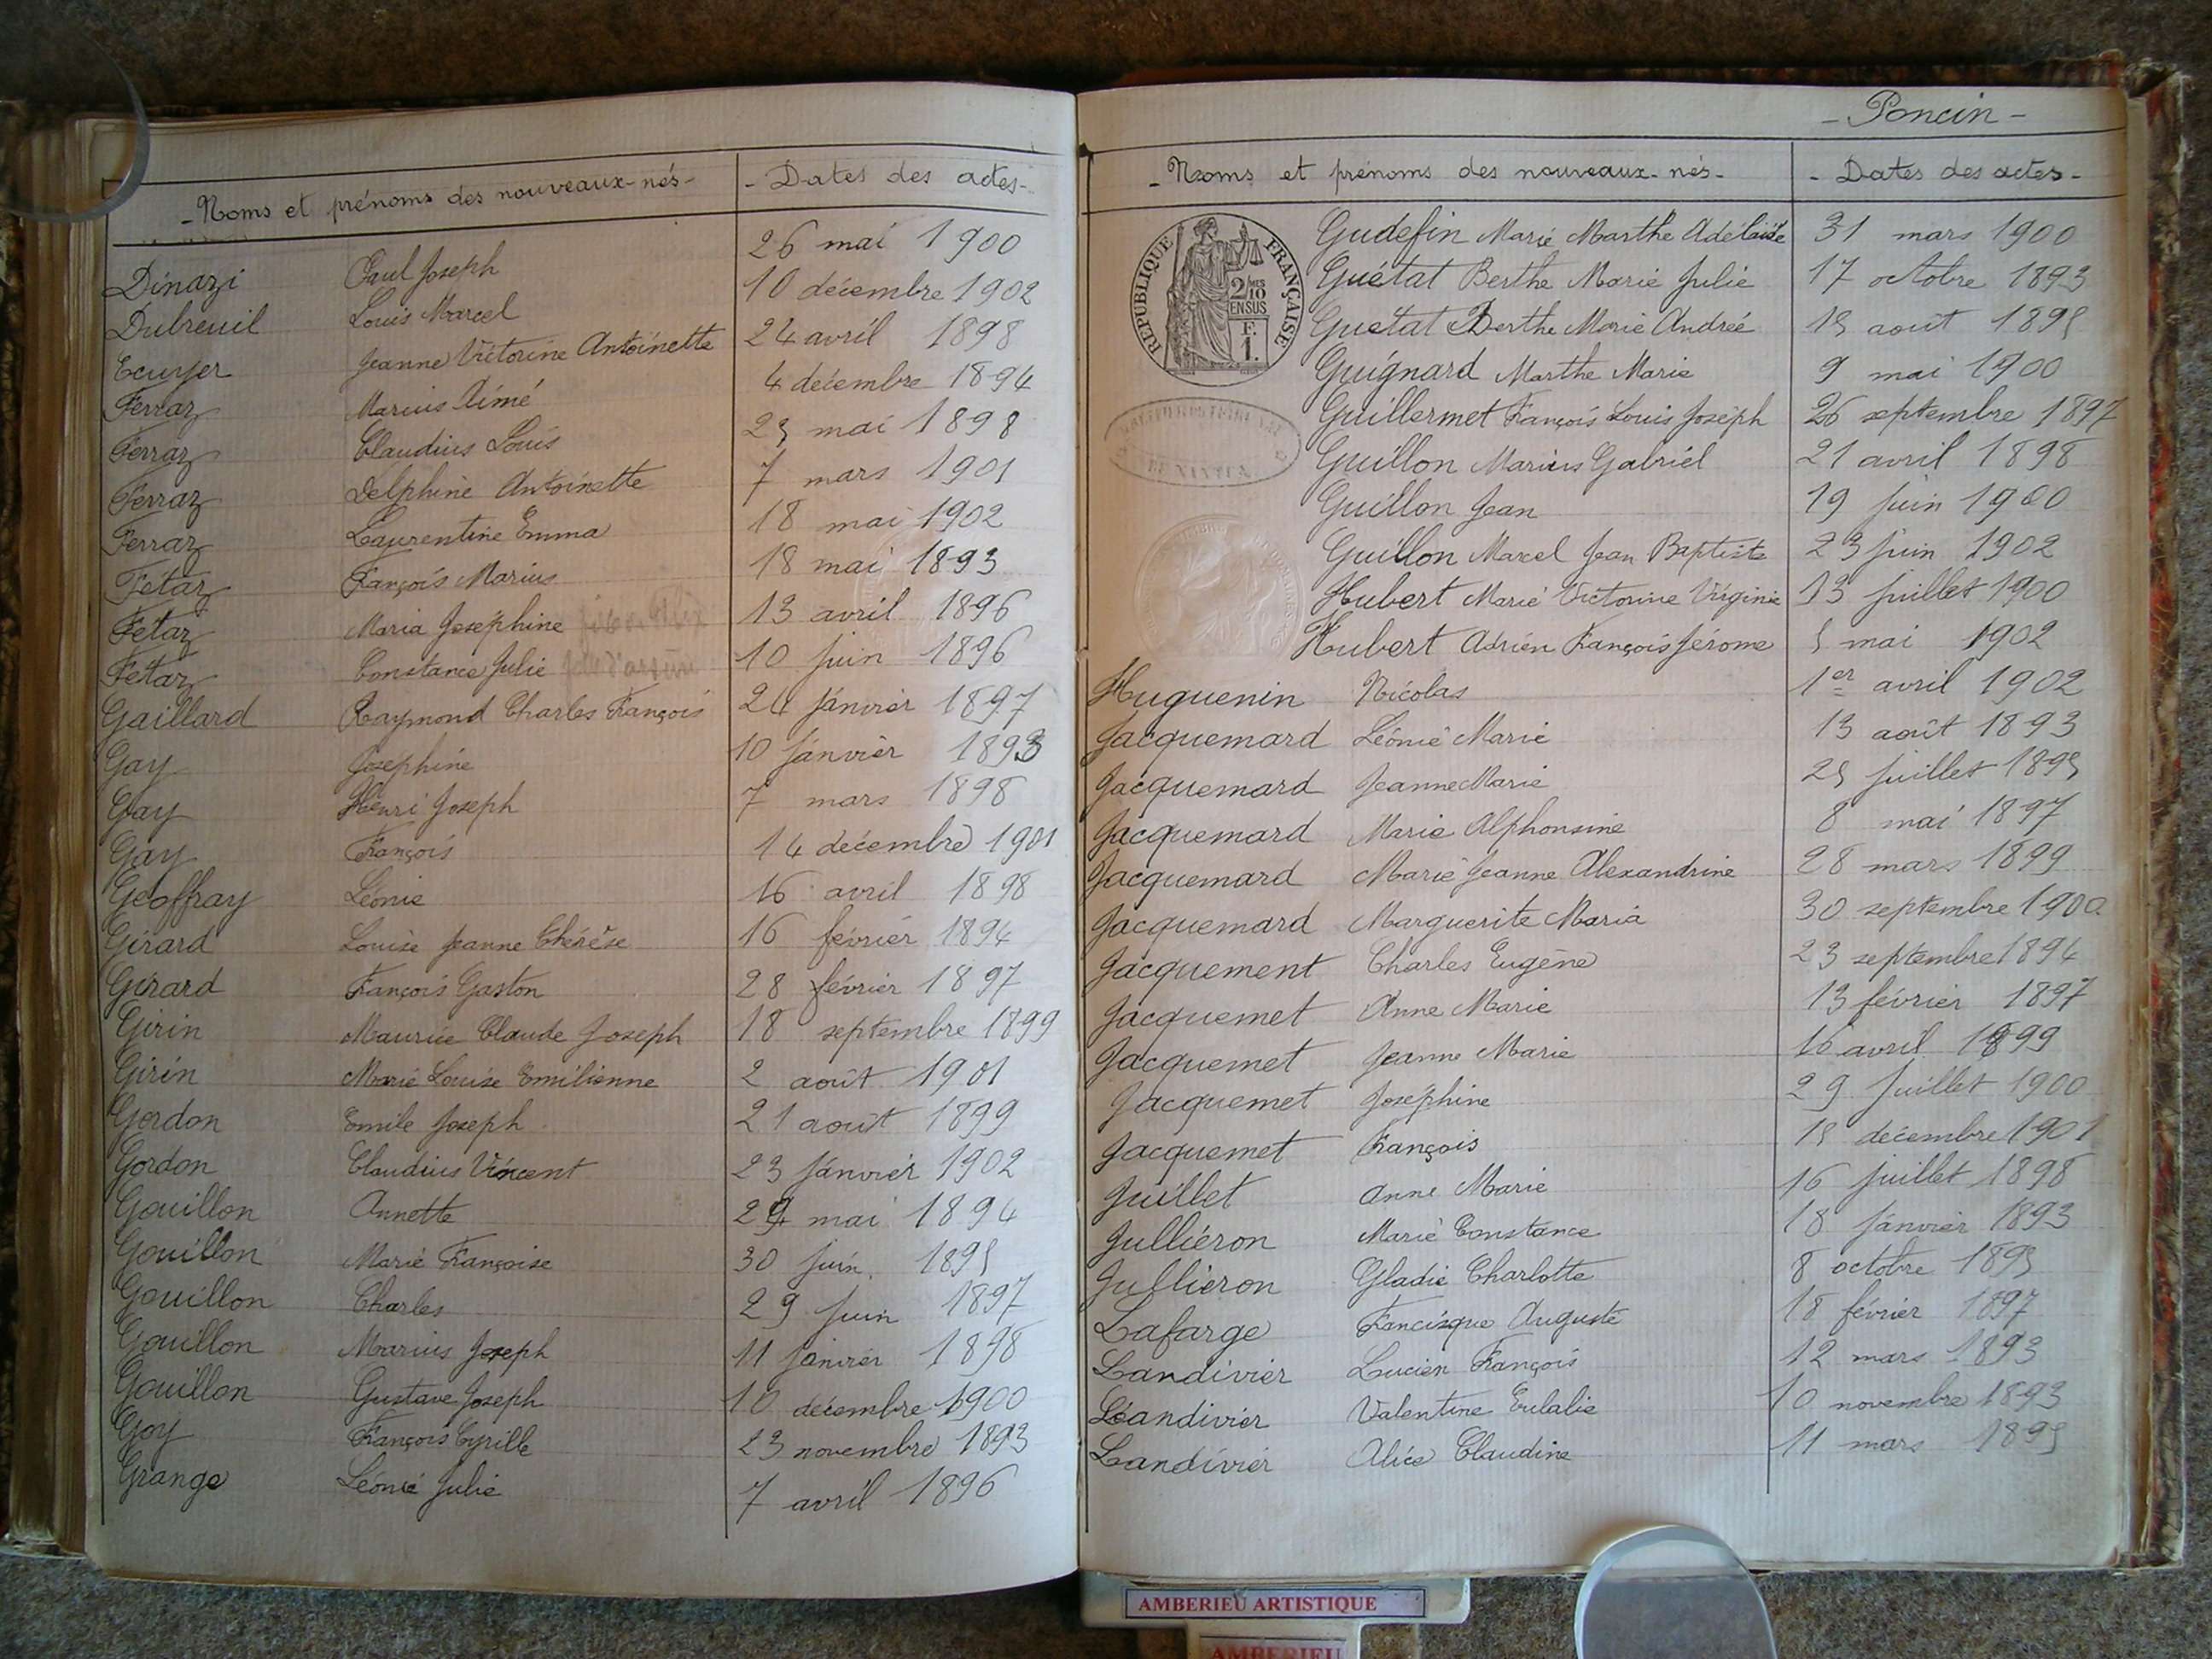 - Noms et prénoms des nouveaux-nés - - Dates des actes -
Dinazi Paul Joseph 26 mai 1900
Dubreuil Louis Marcel 10 décembre 1902
Ecuyer Jeanne Victorine Antoinette 24 avril 1898
Ferraz Marius Aimé 4 décembre 1894
Ferraz Claudius Louis 25 mai 1898
Ferraz Delphine Antoinette 7 mars 1901
Ferraz Laurentine Emma 18 mai 1902
Fetaz François Marius 18 mai 1893
Fetaz Maria Joséphine 13 avril 1896
Fetaz Constance Julie 10 juin 1896
Gaillard Raymond Charles François 24 janvier 1897
Gay Joséphine 10 janvier 1893
Gay Henri Joseph 7 mars 1898
Gay François 14 décembre 1901
Geoffray Léonie 16 avril 1898
Girard Louise Jeanne Thérèse 16 février 1894
Girard François Gaston 28 février 1897
Girin Maurice Claude Joseph 18 septembre 1899
Girin Marie Louise Emilienne 2 août 1901
Gordon Emile Joseph 21 août 1899
Gordon Claudius Vincent 23 janvier 1902
Gouillon Annette mai 1894
Gouillon Marie Françoise 30 juin 1895
Gouillon Charles 29 juin 1897
Gouillon Marius Joseph 11 janvier 1898
Gouillon Gustave Joseph 10 décembre 1900
Goy François Cyrille 23 novembre 1893
Grange Léonie Julie 7 avril 1896
- Poncin -
- Noms et prénoms des nouveaux-nés - - Dates des actes -
RÉPUBLIQUE FRANÇAISE
2/10 MES
EN SUS
F.
1.
Gudefin Marie Marthe Adélaïde 31 mars 1900
Guétat Berthe Marie Julie 17 octobre 1893
Guétat Berthe Marie Andrée 15 août 1895
Guignard Marthe Marie 9 mai 1900
Guillermet François Louis Joseph 26 septembre 1897
Guillon Marius Gabriel 21 avril 1898
Guillon Jean 19 juin 1900
Guillon Marcel Jean Baptiste 23 juin 1902
Hubert Marie Victorine Virginie 13 juillet 1900
Hubert Adrien François Jérome 5 mai 1902
Huguenin Nicolas 1er avril 1902
Jacquemard Léonie Marie 13 août 1893
Jacquemard Jeanne Marie 25 juillet 1895
Jacquemard Marie Alphonsine 8 mai 1897
Jacquemard Marie Jeanne Alexandrine 28 mars 1899
Jacquemard Marguerite Maria 30 septembre 1900
Jacquement Charles Eugène 23 septembre 1894
Jacquemet Anne Marie 13 février 1897
Jacquemet Jeanne Marie 16 avril 1899
Jacquemet Joséphine 29 juillet 1900
Jacquemet François 15 décembre 1901
Juillet Anne Marie 16 juillet 1898
Julliéron Marie Constance 18 janvier 1893
Jullieron Gladie Charlotte 8 octobre 1895
Lafarge Francisque Auguste 18 février 1897
Landivier Lucien François 12 mars 1893
Léandivier Valentine Eulalie 10 novembre 1893
Landivier Alice Claudine 11 mars 1895
AMBERIEU ARTISTIQUE
AMBERIEU